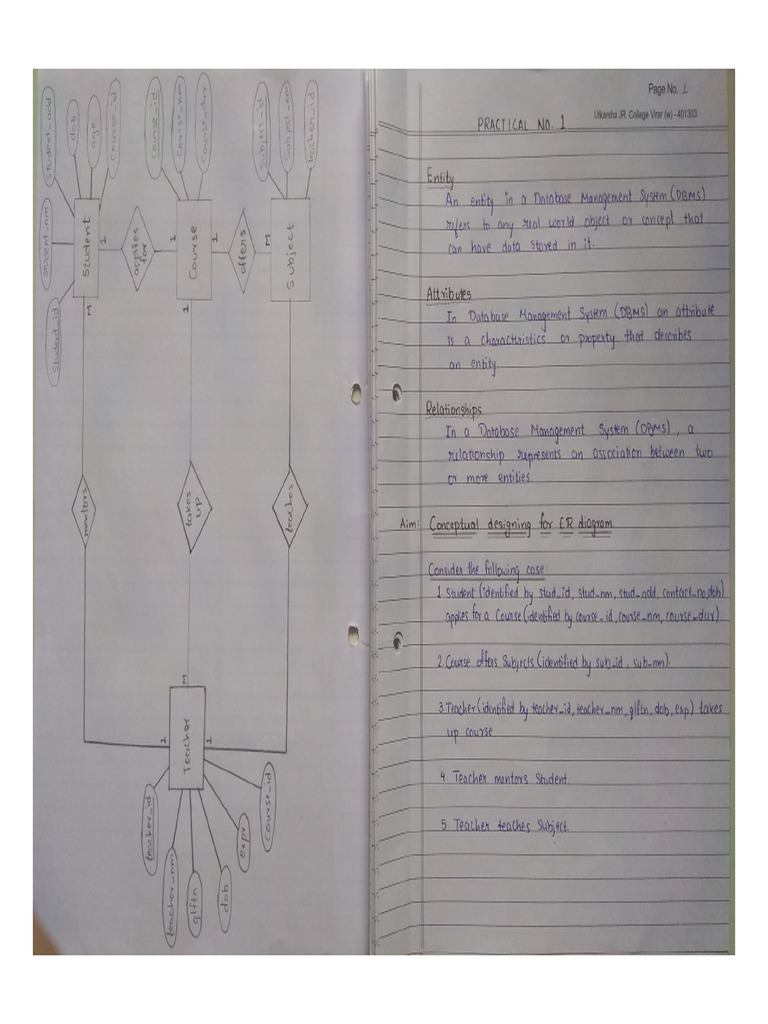 student_add
dob
age
course_id
student_nm
Student_id
Student
1
M
applies
for
course_id
Course_nm
Course_dur
1
Course
1
offers
Subject_id
Subject_nm
teacher_id
M
Subject
mentors
takes
up
teaches
M
1
Teacher
1
teacher_id
teacher_nm
qlftn
dob
expr
course_id
Page No. 1
Utkarsha JR. College Virar (w) - 401303
PRACTICAL NO. 1
Entity
An entity in a Database Management System (DBMS)
refers to any real world object or concept that
can have data stored in it.
Attributes
In Database Management System (DBMS) an attribute
is a characteristics or property that describes
an entity
Relationships
In a Database Management System (DBMS), a
relationship represents an association between two
or more entities
Aim: Conceptual designing for ER diagram
Consider the following case:
1 Student (identified by stud_id, stud_nm, stud_add, contact_no, dob)
applies for a Course (identified by course_id, course_nm, course_dur)
2. Course offers Subjects (identified by sub_id, sub_nm).
3. Teacher (identified by teacher_id, teacher_nm, qlftn, dob, exp) takes
up course
4. Teacher mentors Student.
5. Teacher teaches Subject.